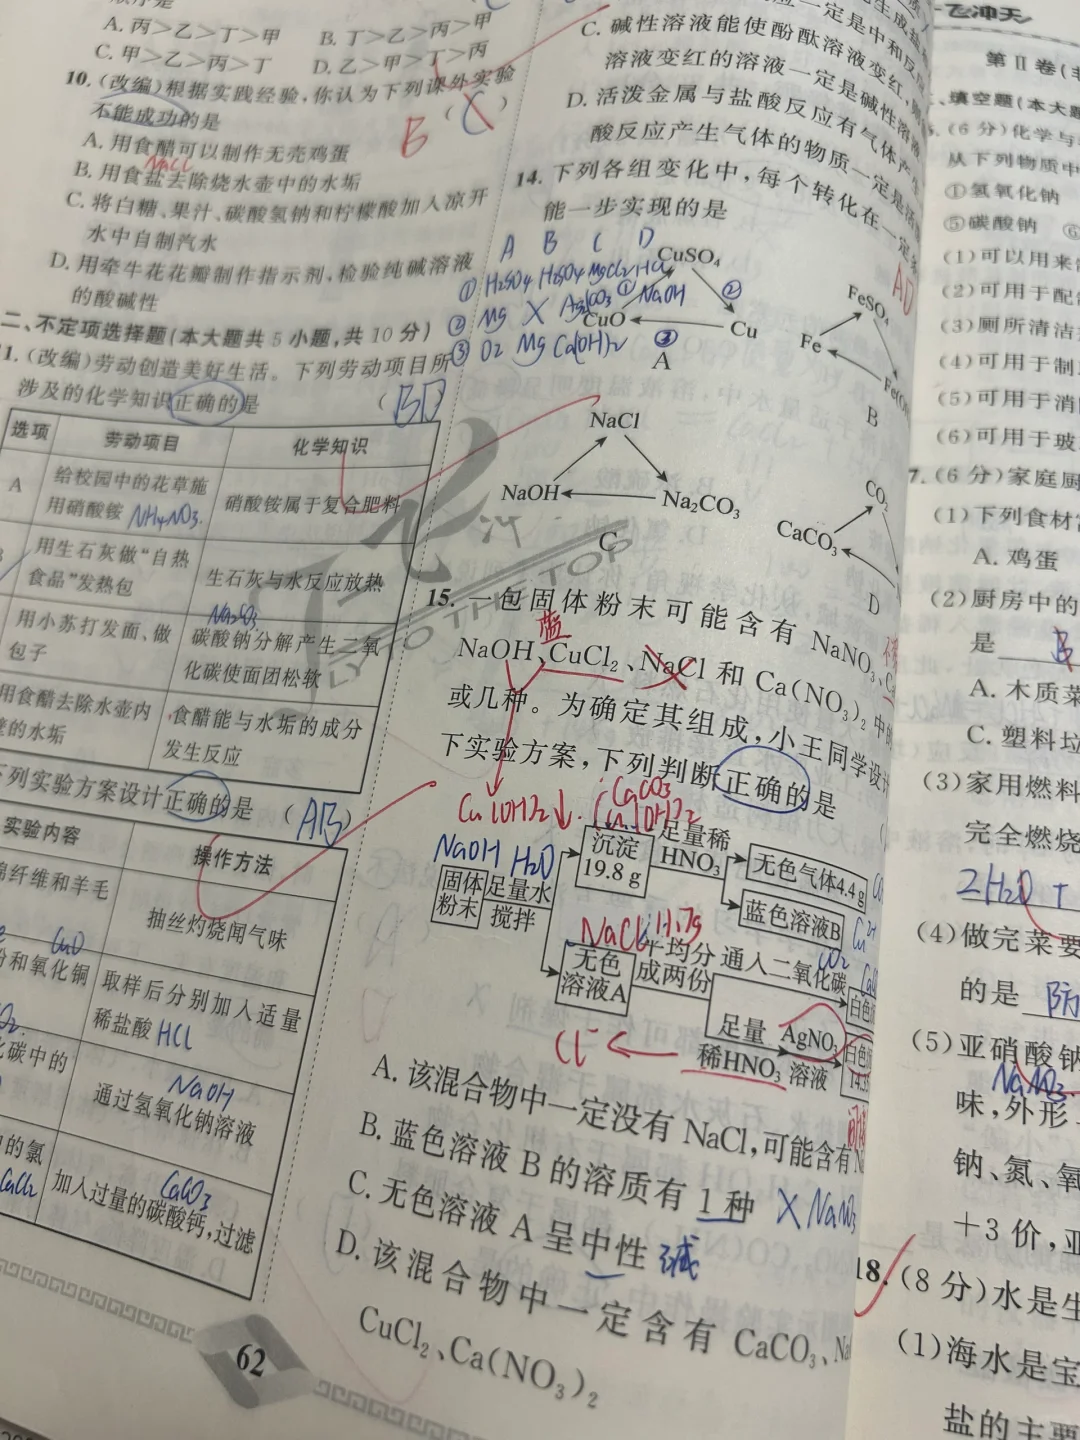 A. 丙>乙>丁>甲
B. 丁>乙>丙>甲
C. 甲>乙>丙>丁
D. 乙>甲>丁>丙
10. (改编)根据实践经验,你认为下列课外实验
不能成功的是
B
A. 用食醋可以制作无壳鸡蛋
NaCl
B. 用食盐去除烧水壶中的水垢
C. 将白糖、果汁、碳酸氢钠和柠檬酸加入凉开
水中自制汽水
D. 用牵牛花花瓣制作指示剂,检验纯碱溶液
的酸碱性
二、不定项选择题(本大题共 5 小题,共 10 分)
(改编)劳动创造美好生活。下列劳动项目所
涉及的化学知识正确的是 ( BD )
选项 劳动项目 化学知识
A 给校园中的花草施
用硝酸铵 NH4NO3
硝酸铵属于复合肥料
用生石灰做“自热
食品”发热包
生石灰与水反应放热
用小苏打发面、做
包子
Na2CO3
碳酸钠分解产生二氧
化碳使面团松软
用食醋去除水壶内
的水垢
食醋能与水垢的成分
发生反应
列实验方案设计正确的是 ( AB )
实验内容 操作方法
纤维和羊毛 抽丝灼烧闻气味
CuO
和氧化铜 取样后分别加入适量
稀盐酸 HCl
碳中的
NaOH
通过氢氧化钠溶液
的氯
CaCO3
加入过量的碳酸钙,过滤
62
C. 碱性溶液能使酚酞溶液变红,
溶液变红的溶液一定是碱性溶液
D. 活泼金属与盐酸反应有气体产生
酸反应产生气体的物质一定是活
14. 下列各组变化中,每个转化在一定
能一步实现的是
AD
A B C D
① H2SO4 H2SO4 MgCl2 HCl
② Mg X Ag2CO3 NaOH
③ O2 Mg Ca(OH)2
CuSO₄
① ②
CuO Cu
③
A
FeSO₄
Fe
B
NaCl
NaOH Na₂CO₃
C
CO₂
CaCO₃
D
LY TO THE TOP
15. 一包固体粉末可能含有 NaNO₃、
蓝
NaOH、CuCl₂、NaCl 和 Ca(NO₃)₂ 中的
或几种。为确定其组成,小王同学设计
下实验方案,下列判断正确的是
Cu(OH)2↓
CaCO3
Cu(OH)2
NaOH H2O
固体
粉末
足量水
搅拌
沉淀
19.8 g
足量稀
HNO₃
无色气体4.4 g
蓝色溶液B
Cu2+
NaCl: 11.7g
无色
溶液A
平均分
成两份
通入二氧化碳
CO2
足量 AgNO₃
稀HNO₃ 溶液
Cl-
A. 该混合物中一定没有 NaCl,可能含有
B. 蓝色溶液 B 的溶质有 1 种 X NaNO3
C. 无色溶液 A 呈中性 碱
D. 该混合物中一定含有 CaCO₃、
CuCl₂、Ca(NO₃)₂
飞冲天
第 Ⅱ 卷(
填空题(本大题
(6 分)化学与
从下列物质中
①氢氧化钠
⑤碳酸钠
(1)可以用来
(2)可用于配
(3)厕所清洁
(4)可用于制
(5)可用于消
(6)可用于玻
7. (6 分)家庭厨
(1)下列食材
A. 鸡蛋
(2)厨房中的
是 B
A. 木质菜
C. 塑料垃
(3)家用燃料
完全燃烧
2H2O +
(4)做完菜要
的是 防
(5)亚硝酸钠
NaNO3
味,外形
钠、氮、氧
+3 价,亚
18. (8 分)水是生
(1)海水是宝
盐的主要